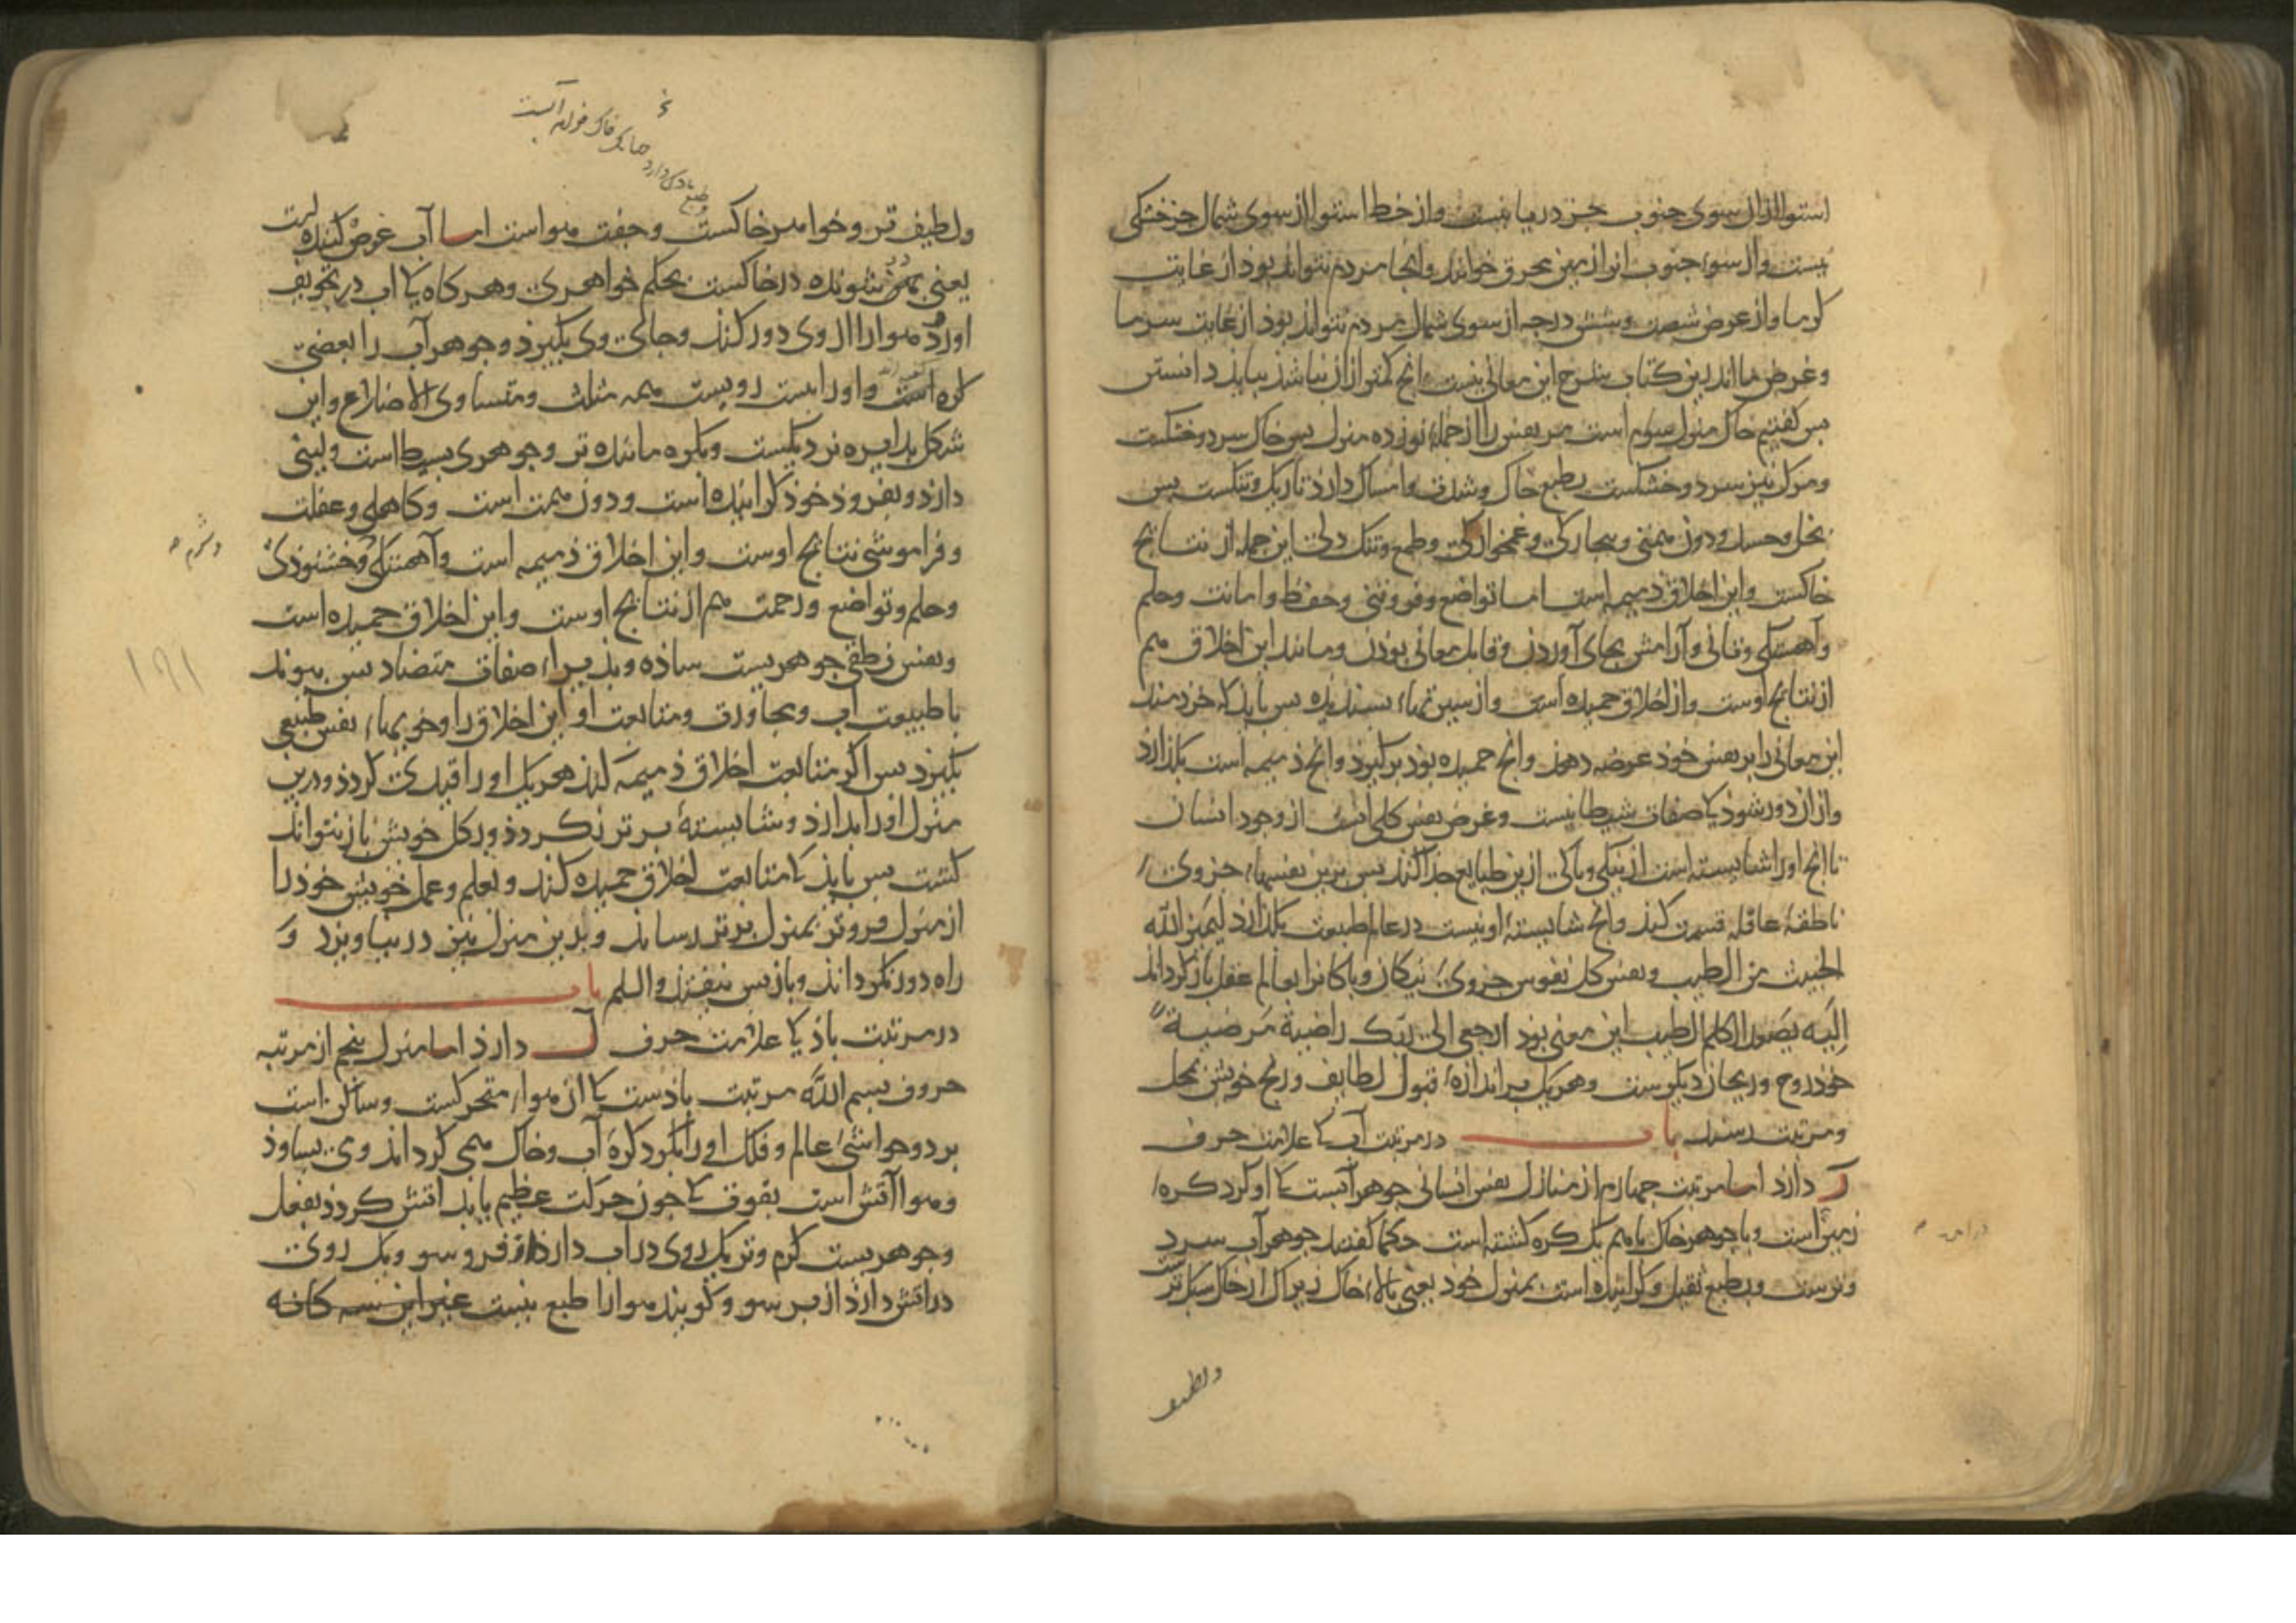 استوا از آن سوی جنوب جز دریا نیست و از خط استوا از سوی شمال جز خشکی
نیست و آن سوء جنوب انرا زمین محرق خوانند و انجا مردم نتواند بود از غایت
کرما و از عرض شصت و شش درجه از سوی شمال مردم نتواند بود از غایت سرما
و غرض ما اندرین کتاب شرح این معانی نیست و انج کمتر ازان نباشذ ببایذ دانستن
بس کفتیم خاک منزل سوم است مر نفس را از جملهٔ نوزده منزل بس خاک سرد و خشکست
و مرک نیز سرد و خشکست بطبع خاک و شدت و امساک دارذ تاریک و تنکست بس
بخل و حسد و دون همتی و بیجارکی و غمخوارکی و طمع و تنک دلی این جمله از نتایج
خاکست و این اخلاق ذمیمه است اما تواضع و فروتنی و حفظ و امانت و حلم
و آهستکی و تانی و آرامش بجای آوردن و قابل معانی بوذن و مانند این اخلاق هم
از نتایج اوست و از اخلاق حمیده است و بسندیده بس بایذ کی خردمند
این معانی را بر نفس خود عرضه دهد و انج حمیده بوذ بر کیرد و انج ذمیمه است بکذارد
و ازان دور شوذ کی صفات شیطانیست و غرض نفس کلی از وجود انسان
تا انج او را شایسته است از نیکی و باکی ازین طبایع جدا کند بس برین نفسهاء جزوی
ناطقهٔ عاقله قسمت کند و انج شایستهٔ او نیست در عالم طبیعت بکذارد لیمیز الله
الخبیث من الطیب و نفس کل نفوس جزویء نیکان و باکانرا بعالم عقل باز کرداند
إلَیه یصعد الکلم الطیب این معنی بود ارجعی الی ربّک راضیة مَرضیة
خود روح و ریحان دیکرست و هر یک بر اندازهٔ قبول لطایف و رنج خویش بمحل
و مرتبت رسند باب در مرتبت آب کی علامت حرف
ر دارد اما مرتبت جهارم از منازل نفس انسانی جوهر آبست کی او کرد کرهٔ
زمین است و با جوهر خاک باهم یک کره کشته است حکما کفتند جوهر آب سرد
و ترست و بطبع ثقیل و کراینده است بمنزل خود یعنی بالاء خاک زیرا کی از خاک سبکترست
ولطیف
خ
ولطیف تر و خواهر خاکست و جفت هواست اما آب غوص کننده است
یعنی شونده در خاکست بحکم خواهری و هر کاه کی اب در تجویف
اورد هوا را از وی دور کند و جای وی بکیرذ و جوهر آب را بعضی
کره است و اورا بیست رویست همه مثلث و متساوی الاضلاع و این
شکل بدایره نزدیکست و بکره ماننده تر و جوهری بسیط است و لینی
دارد و بفرود خوذ کراینده است و دون همت است و کاهلی و غفلت
و فراموشی نتایج اوست و این اخلاق ذمیمه است و آهستکی و خشنوذی
وشرم صح
و حلم و تواضع و رحمت هم از نتایج اوست و این اخلاق حمیده است
و نفس نطقی جوهریست ساذه و بذیراء صفات متضاد بس بیوند
با طبیعت اب و مجاورت و متابعت او این اخلاق را و خویهاء نفس طبیعی
بکیرد بس اکر متابعت اخلاق ذمیمه کند هر یک او را قیدی کردذ و درین
منزل او را بدارد و شایستهٔ برتر نکردذ و در کل خویش باز نتواند
کشت بس بایذ کی متابعت اخلاق حمیده کند و بعلم و عمل خویش خوذ را
از منزل فروتر بمنزل برتر رساند و بدین منزل نیز در نیاویزد و
راه دور نکرداند و باز بس نیفتد والسلم باب
در مرتبت باذ کی علامت حرف دارذ اما منزل بنجم از مرتبه
حروف بسم الله مرتبت باذست کی ان هواء متحرکست و ساکن است
بر دو حواشیء عالم و فلک او را بکرد کرهٔ آب و خاک همی کرداند
و هوا آتش است بقوت کی جون حرکت عظیم یابد اتش کردذ بفعل
و جوهریست کرم و تر یک روی در اب دارد از فروسو و یک روی
در اتش دارذ از برسو و کویند هوا را طبع نیست غیر این سه کانه